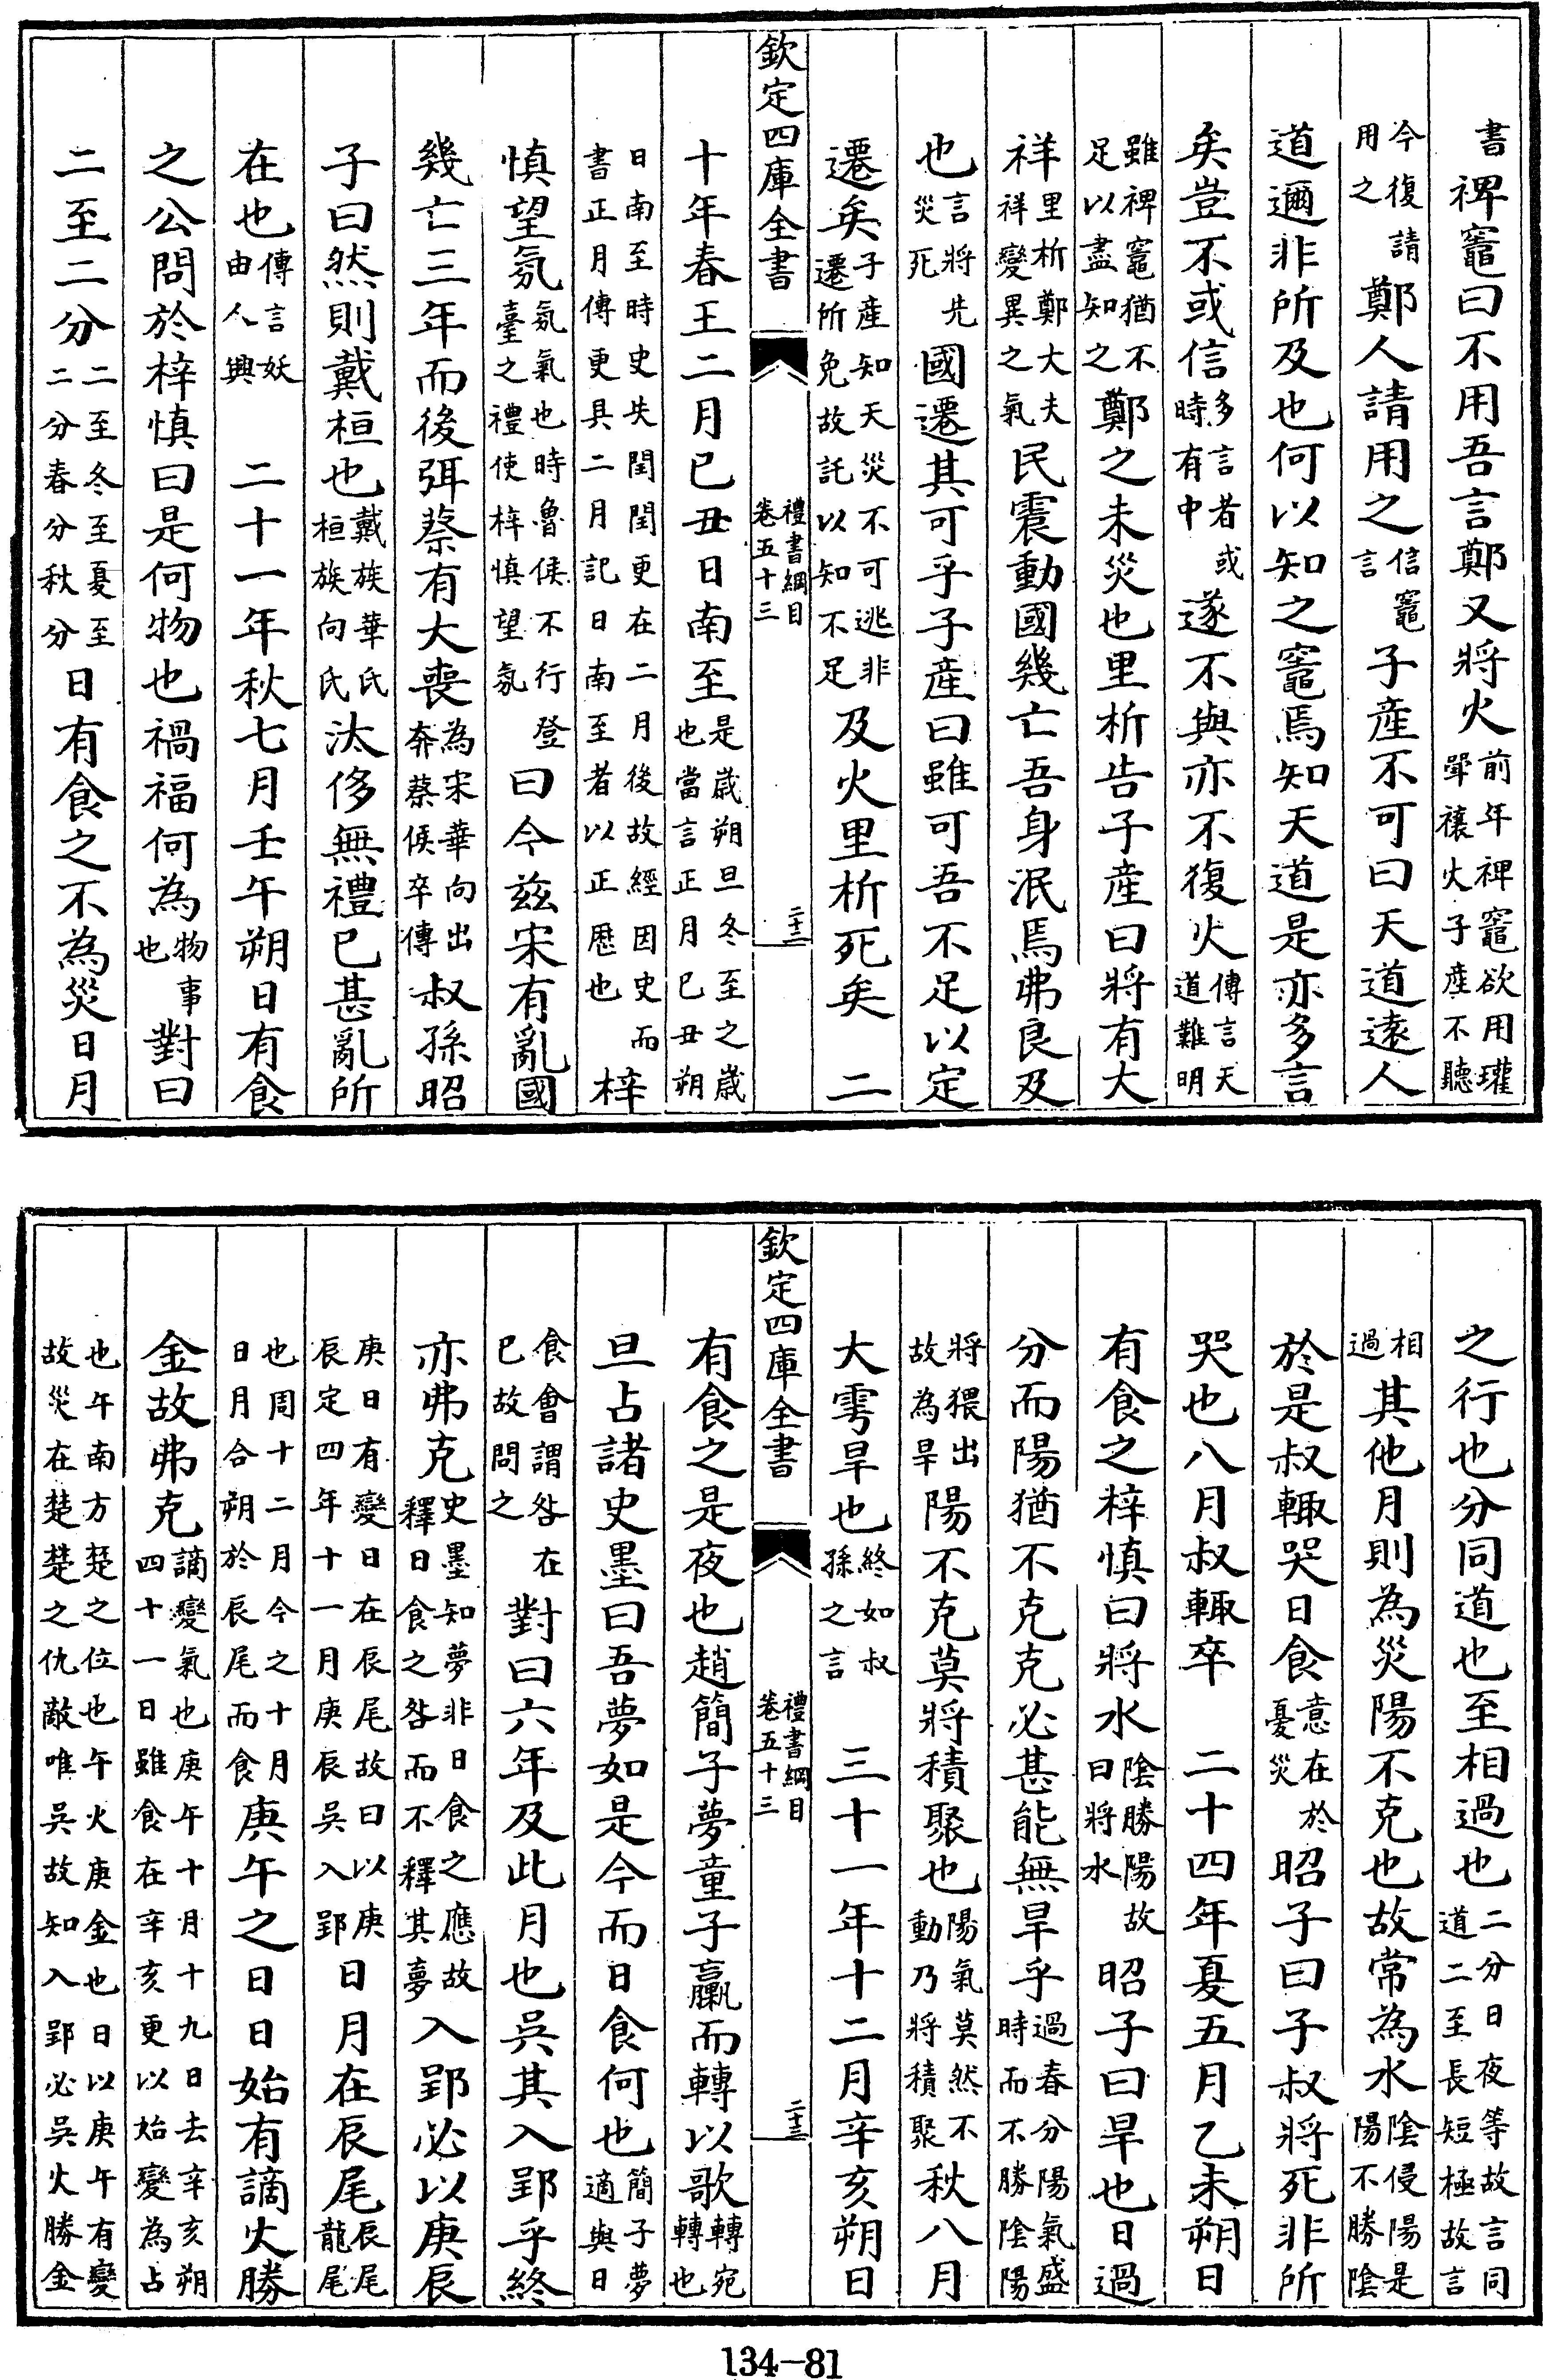 書禆竈曰不用吾言鄭又將火前年禆竈欲用瓘斝禳火子產不聽
今復請用之鄭人請用之信竈言子產不可曰天道遠人
道邇非所及也何以知之竈焉知天道是亦多言
矣豈不或信多言者或時有中遂不與亦不復火傳言天道難明
雖禆竈猶不足以盡知之鄭之未災也里析告子產曰將有大
祥里析鄭大夫祥變異之氣民震動國幾亡吾身泯焉弗良及
也言將先災死國遷其可乎子產曰雖可吾不足以定
遷矣子產知天災不可逃非遷所免故託以知不足及火里析死矣 二
欽定四庫全書 禮書綱目卷五十三 二十二
十年春王二月已丑日南至是歲朔旦冬至之歲也當言正月已丑朔
日南至時史失閏閏更在二月後故經因史而書正月傳更具二月記日南至者以正歷也梓
慎望氛氛氣也時魯侯不行登臺之禮使梓慎望氛曰今兹宋有亂國
幾亡三年而後弭蔡有大喪為宋華向出奔蔡侯卒傳叔孫昭
子曰然則戴桓也戴族華氏桓族向氏汰侈無禮已甚亂所
在也傳言妖由人興 二十一年秋七月壬午朔日有食
之公問於梓慎曰是何物也禍福何為物事也對曰
二至二分二至冬至夏至二分春分秋分日有食之不為災日月
之行也分同道也至相過也二分日夜等故言同道二至長短極故言
相過其他月則為災陽不克也故常為水陰侵陽是陽不勝陰
於是叔輒哭日食意在於憂災昭子曰子叔將死非所
哭也八月叔輒卒 二十四年夏五月乙未朔日
有食之梓慎曰將水陰勝陽故曰將水昭子曰旱也日過
分而陽猶不克克必甚能無旱乎過春分陽氣盛時而不勝陰陽
將猥出故為旱陽不克莫將積聚也陽氣莫然不動乃將積聚秋八月
大雩旱也終如叔孫之言 三十一年十二月辛亥朔日
欽定四庫全書 禮書綱目卷五十三 二十三
有食之是夜也趙簡子夢童子臝而轉以歌轉宛轉也
旦占諸史墨曰吾夢如是今而日食何也簡子夢適與日
食會謂咎在已故問之對曰六年及此月也吳其入郢乎終
亦弗克史墨知夢非日食之應故釋日食之咎而不釋其夢入郢必以庚辰
庚日有變日在辰尾故曰以庚辰定四年十一月庚辰吳入郢日月在辰尾辰尾龍尾
也周十二月今之十月日月合朔於辰尾而食庚午之日日始有謫火勝
金故弗克謫變氣也庚午十月十九日去辛亥朔四十一日雖食在辛亥更以始變為占
也午南方楚之位也午火庚金也日以庚午有變故災在楚楚之仇敵唯吳故知入郢必吳火勝金
134-81